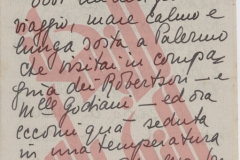 viaggio, mare calmo e
lunga sosta a Palermo
che visitai in compa-
gnia dei Robertson - e
Mlle Godiani - ed ora
eccomi qua - seduta
in una temperatura